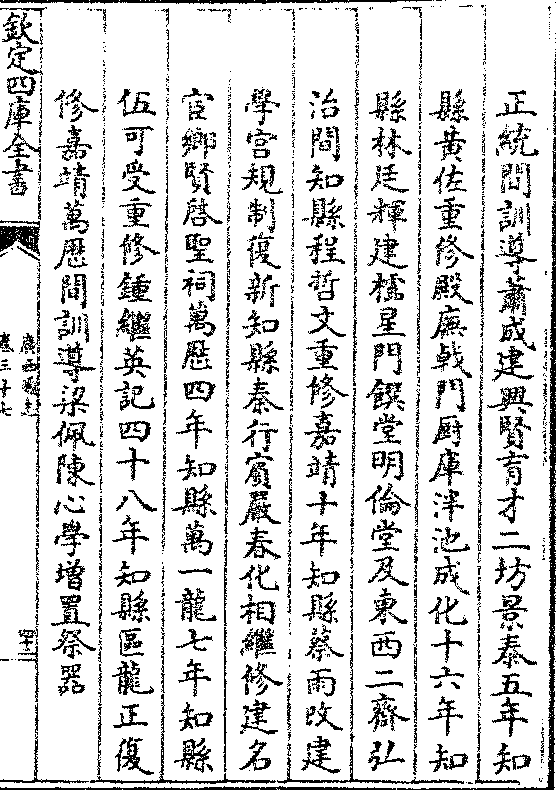 正統間訓導蕭成建興賢育才二坊景泰五年知
縣黃佐重修殿廡㦸門厨庫泮池成化十六年知
縣林廷輝建櫺星門饌堂明倫堂及東西二齋弘
治間知縣程哲文重修嘉靖十年知縣蔡雨改建
學宫規制復新知縣秦行賔嚴春化相繼修建名
宦鄉賢啓聖祠萬歴四年知縣萬一龍七年知縣
伍可受重修鍾繼英記四十八年知縣區龍正復
修嘉靖萬歴間訓導梁佩陳心學增置祭器
欽定四庫全書
廣西通志
卷三十七